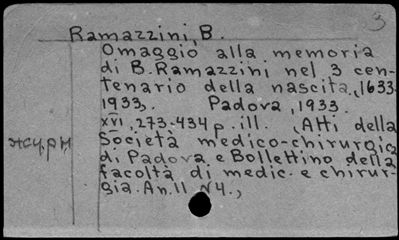 3
Ramazzini, B.
Omaggio alla memoria
di B. Ramazzini nel 3 cen-
tenario della nascita, 1633-
1933. Padova, 1933.
XVI, 273-434 p. ill. (Atti della
Società medico-chirurgica
di Padova e Bollettino della
facoltà di medic. e chirur-
gia. An. 11 N4.,
журн